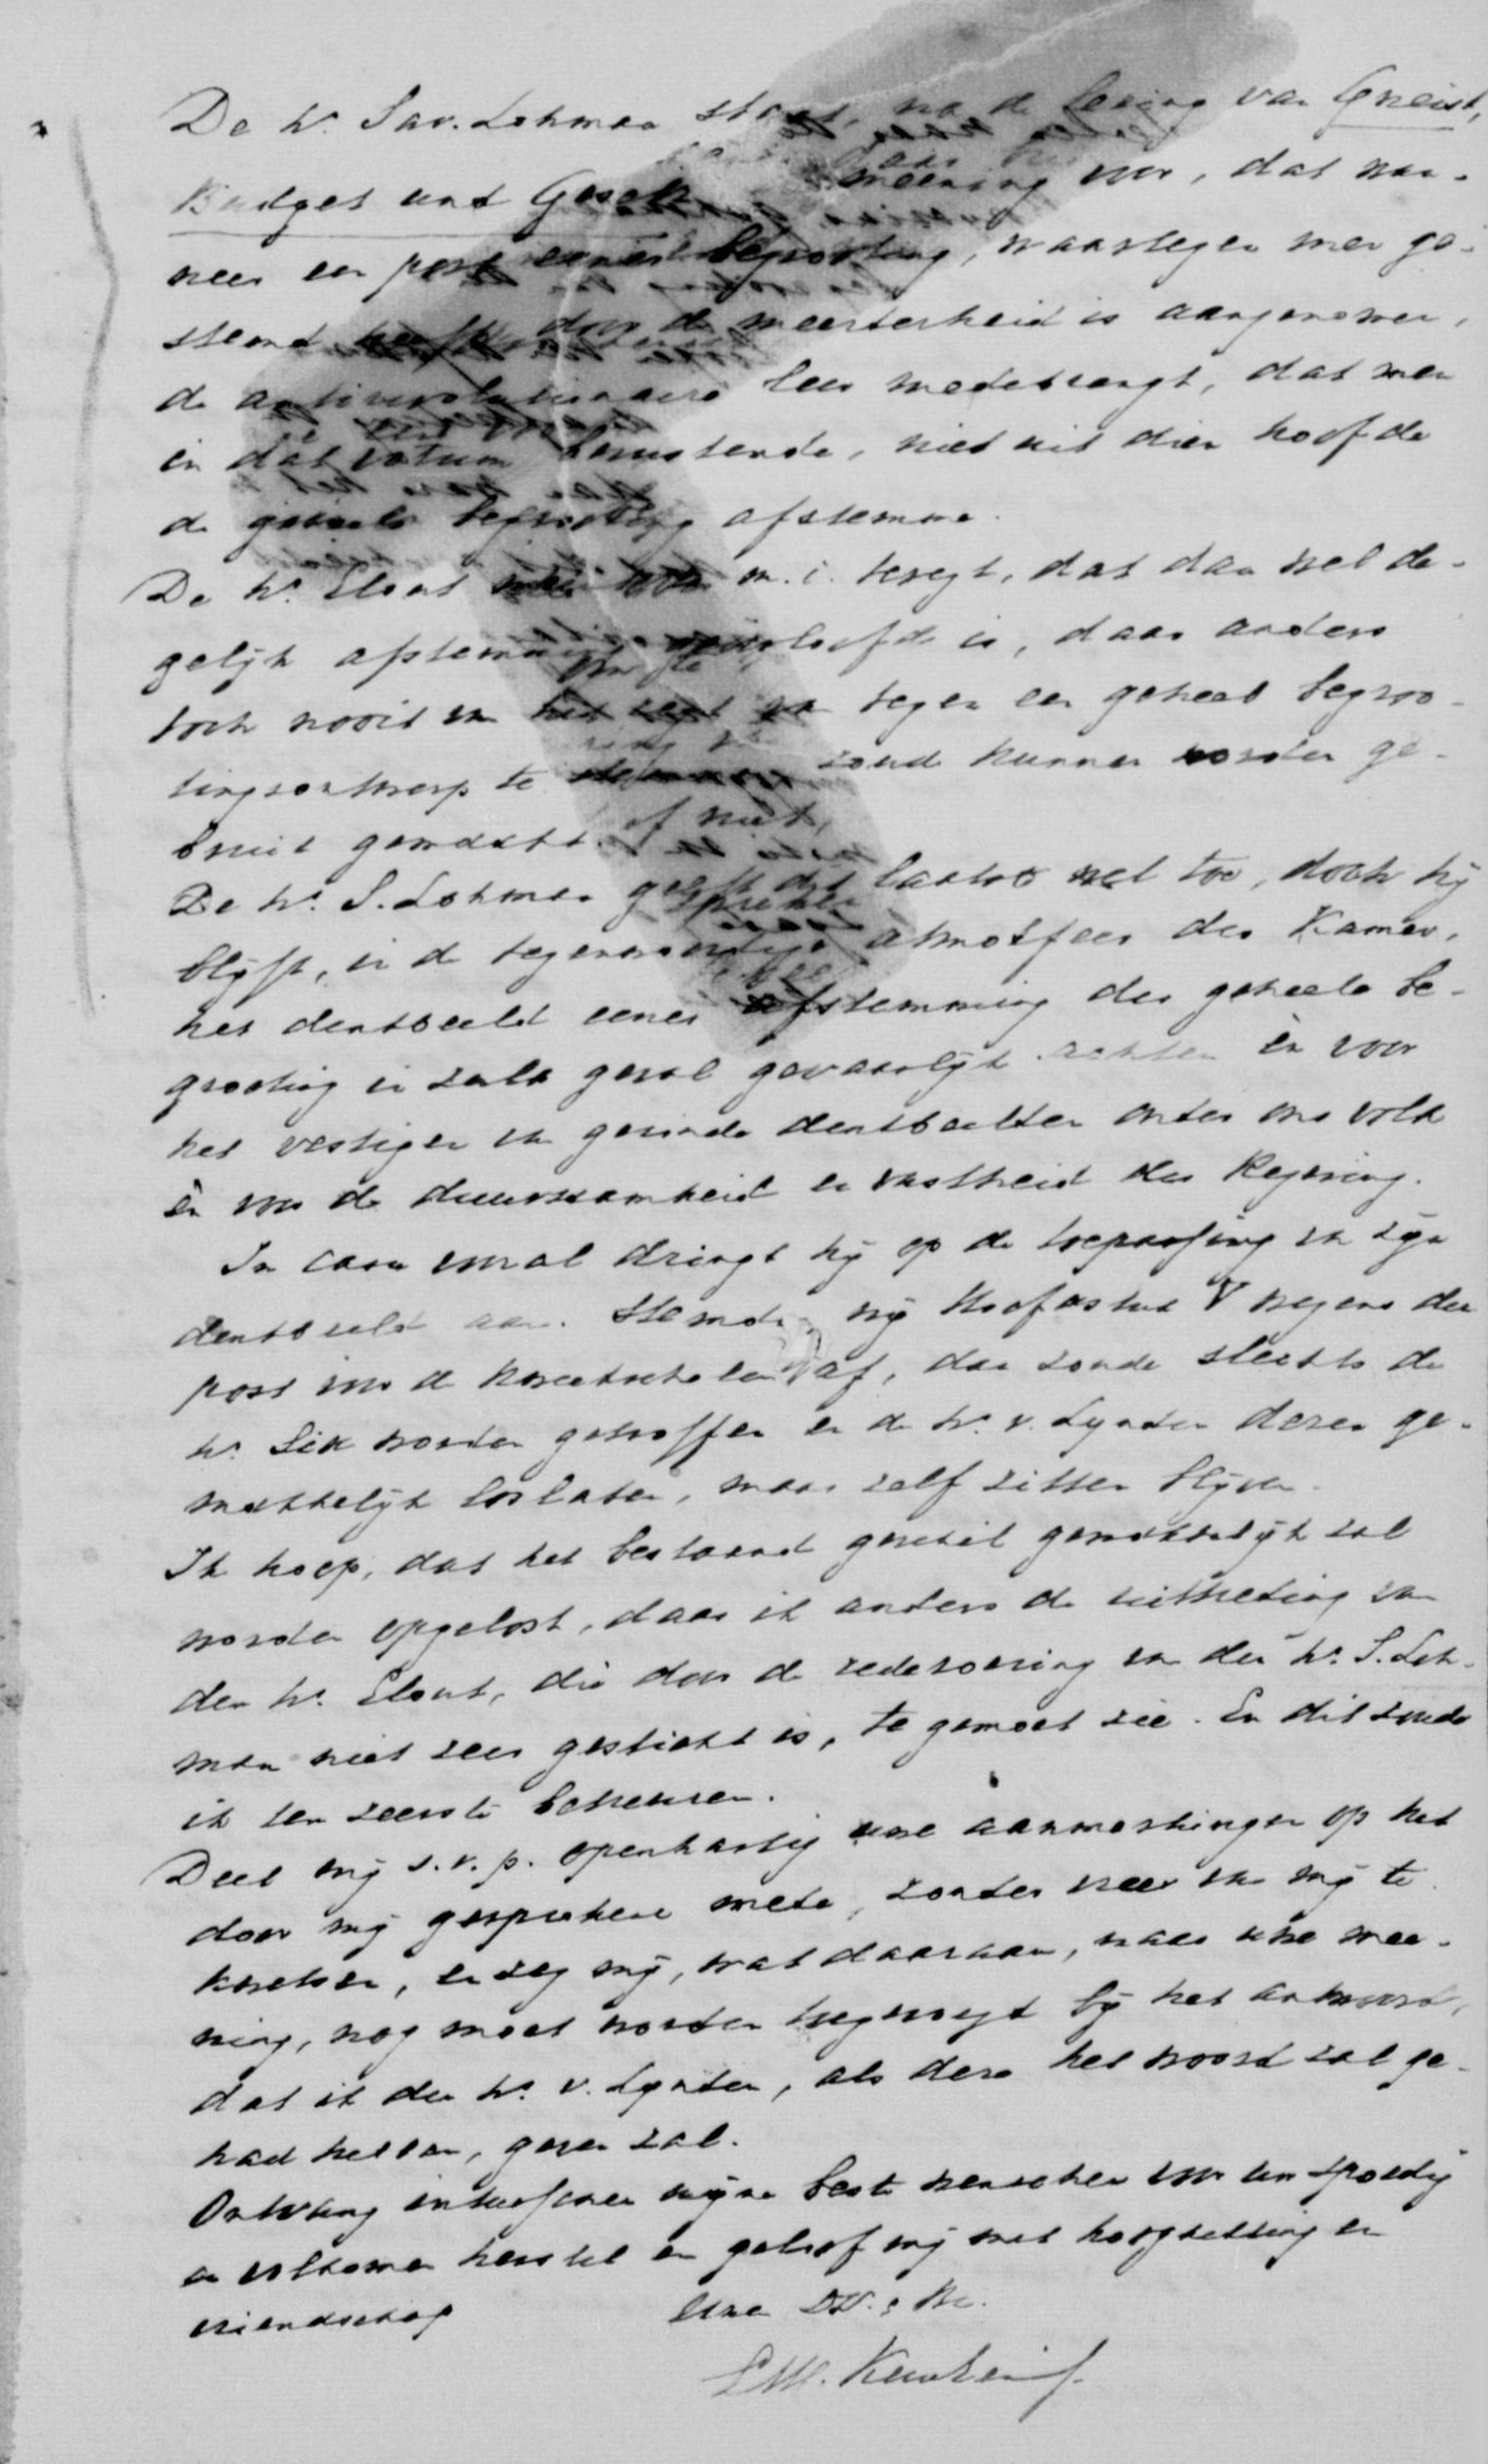 De hr. Sav. Lohman staat, na de lezing van Gneist,
Budget und Gesetz meening voor, dat wan-
neer een post eener begrooting, waartegen men ge-
stemd heeft, door de meerderheid is aangenomen,
de antirevolutionaire leer medebrengt, dat men
in dat votum berustende, niet uit dien hoofde
de geheele begrooting afstemme.
De hr. Elout m.i. teregt, dat dan wel de-
gelijk afstemming geoorloofd is, daar anders
toch nooit van het regt om tegen een geheel begroo-
tingsontwerp te stemmen zoude kunnen worden ge-
bruik gemaakt of niet,
De hr. S. Lohman geeft dit laatste wel toe, doch hij
blijft, in de tegenwoordige atmosfeer der Kamer,
het denkbeeld eener afstemming der geheele be-
grooting in zulk geval gevaarlijk achten én voor
het vestigen van gezonde denkbeelden onder ons volk
én voor de duurzaamheid en vastheid der Regering.
In casu vooral dringt hij op de toepassing van zijn
denkbeeld aan. Stemden wij Hoofdstuk V wegens den
post voor de kweekscholen af, dan zoude slechts de
hr. Six worden getroffen en de hr. v. Lynden dezen ge-
makkelijk loslaten, maar zelf zitten blijven.
Ik hoop, dat het bestaand geschil gemakkelijk zal
worden opgelost, daar ik anders de uittreding van
den hr. Elout, die door de redenering van den hr. S. Loh-
man niet zeer gesticht is, te gemoet zie. En dit zoude
ik ten zeerste betreuren.
Deel mij s.v.p. openhartig uwe aanmerkingen op het
door mij gesprokene mede, zonder vrees van mij te
kwetsen, en zeg mij, wat daaraan, naar uwe mee-
ning, nog moet worden toegevoegd bij het antwoord,
dat ik den hr. v. Lynden, als deze het woord zal ge-
had hebben, geven zal.
Ontvang intusschen mijne beste wenschen voor een spoedig
en volkomen herstel en geloof mij met hoogachting en
vriendschap
Uwe DW.
L.W. Keuchenius